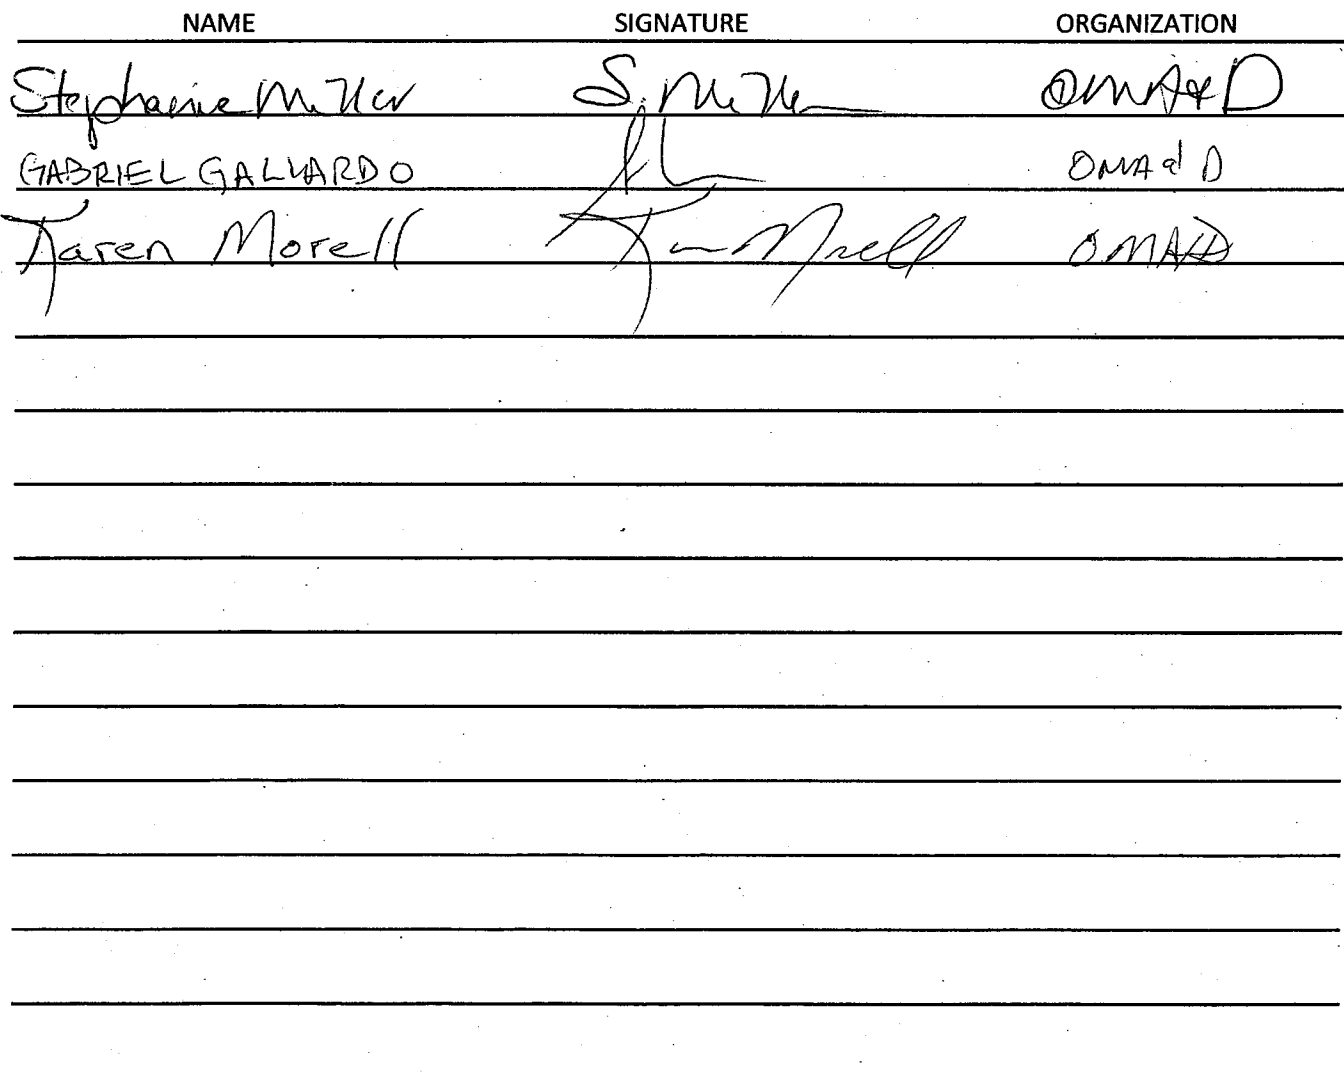 NAME SIGNATURE ORGANIZATION
Stephanie Miller S. Miller OMA&D
GABRIEL GALLARDO OMA&D
Karen Morell Karen Morell OMA&D